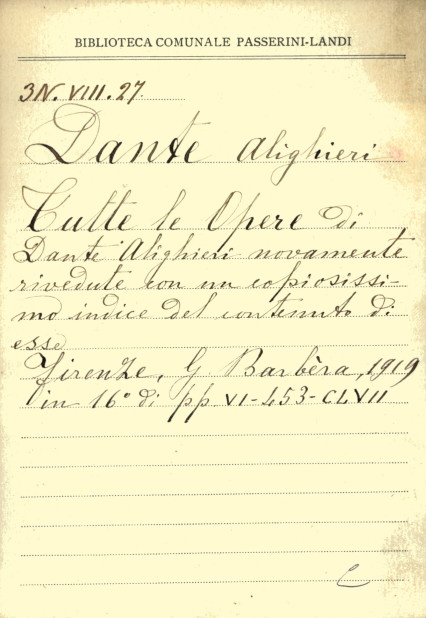 BIBLIOTECA COMUNALE PASSERINI-LANDI
3N. VIII. 27.
Dante Alighieri
Tutte le Opere di
Dante Alighieri novamente
rivedute con un copiosissi-
mo indice del contenuto di
esse
Firenze, G Barbèra, 1919
in 16° di pp VI-453-CLVII
C